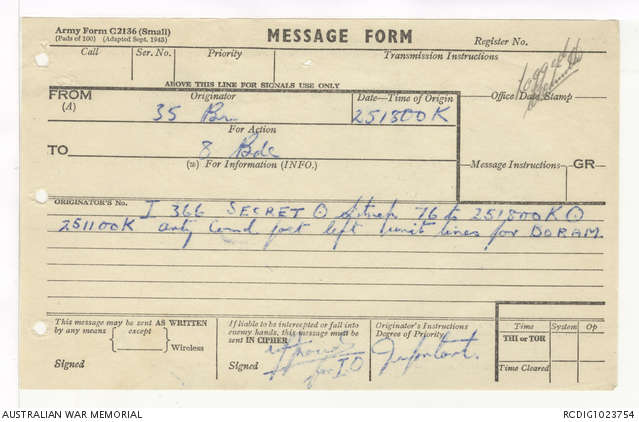 Army Form C2136 (Small)
(Pads of 100) (Adapted Sept. 1943)
MESSAGE FORM
Register No.
Call Ser. No. Priority Transmission Instructions
ABOVE THIS LINE FOR SIGNALS USE ONLY
FROM
(A)
Originator
35 Bn
Date—Time of Origin
251800K
Office Date Stamp
For Action
TO
8 Bde
(w) For Information (INFO.)
Message Instructions GR
ORIGINATOR'S No.
I 366 SECRET ⊙ Sitrep 76 to 251800K ⊙
251100K arty Comd post left unit lines for DORAM.
This message may be sent AS WRITTEN
by any means except
Wireless
Signed
If liable to be intercepted or fall into
enemy hands, this message must be
sent IN CIPHER
Signed
for IO
Originator's Instructions
Degree of Priority
Important.
Time System Op
THI or TOR
Time Cleared
AUSTRALIAN WAR MEMORIAL
RCDIG1023754